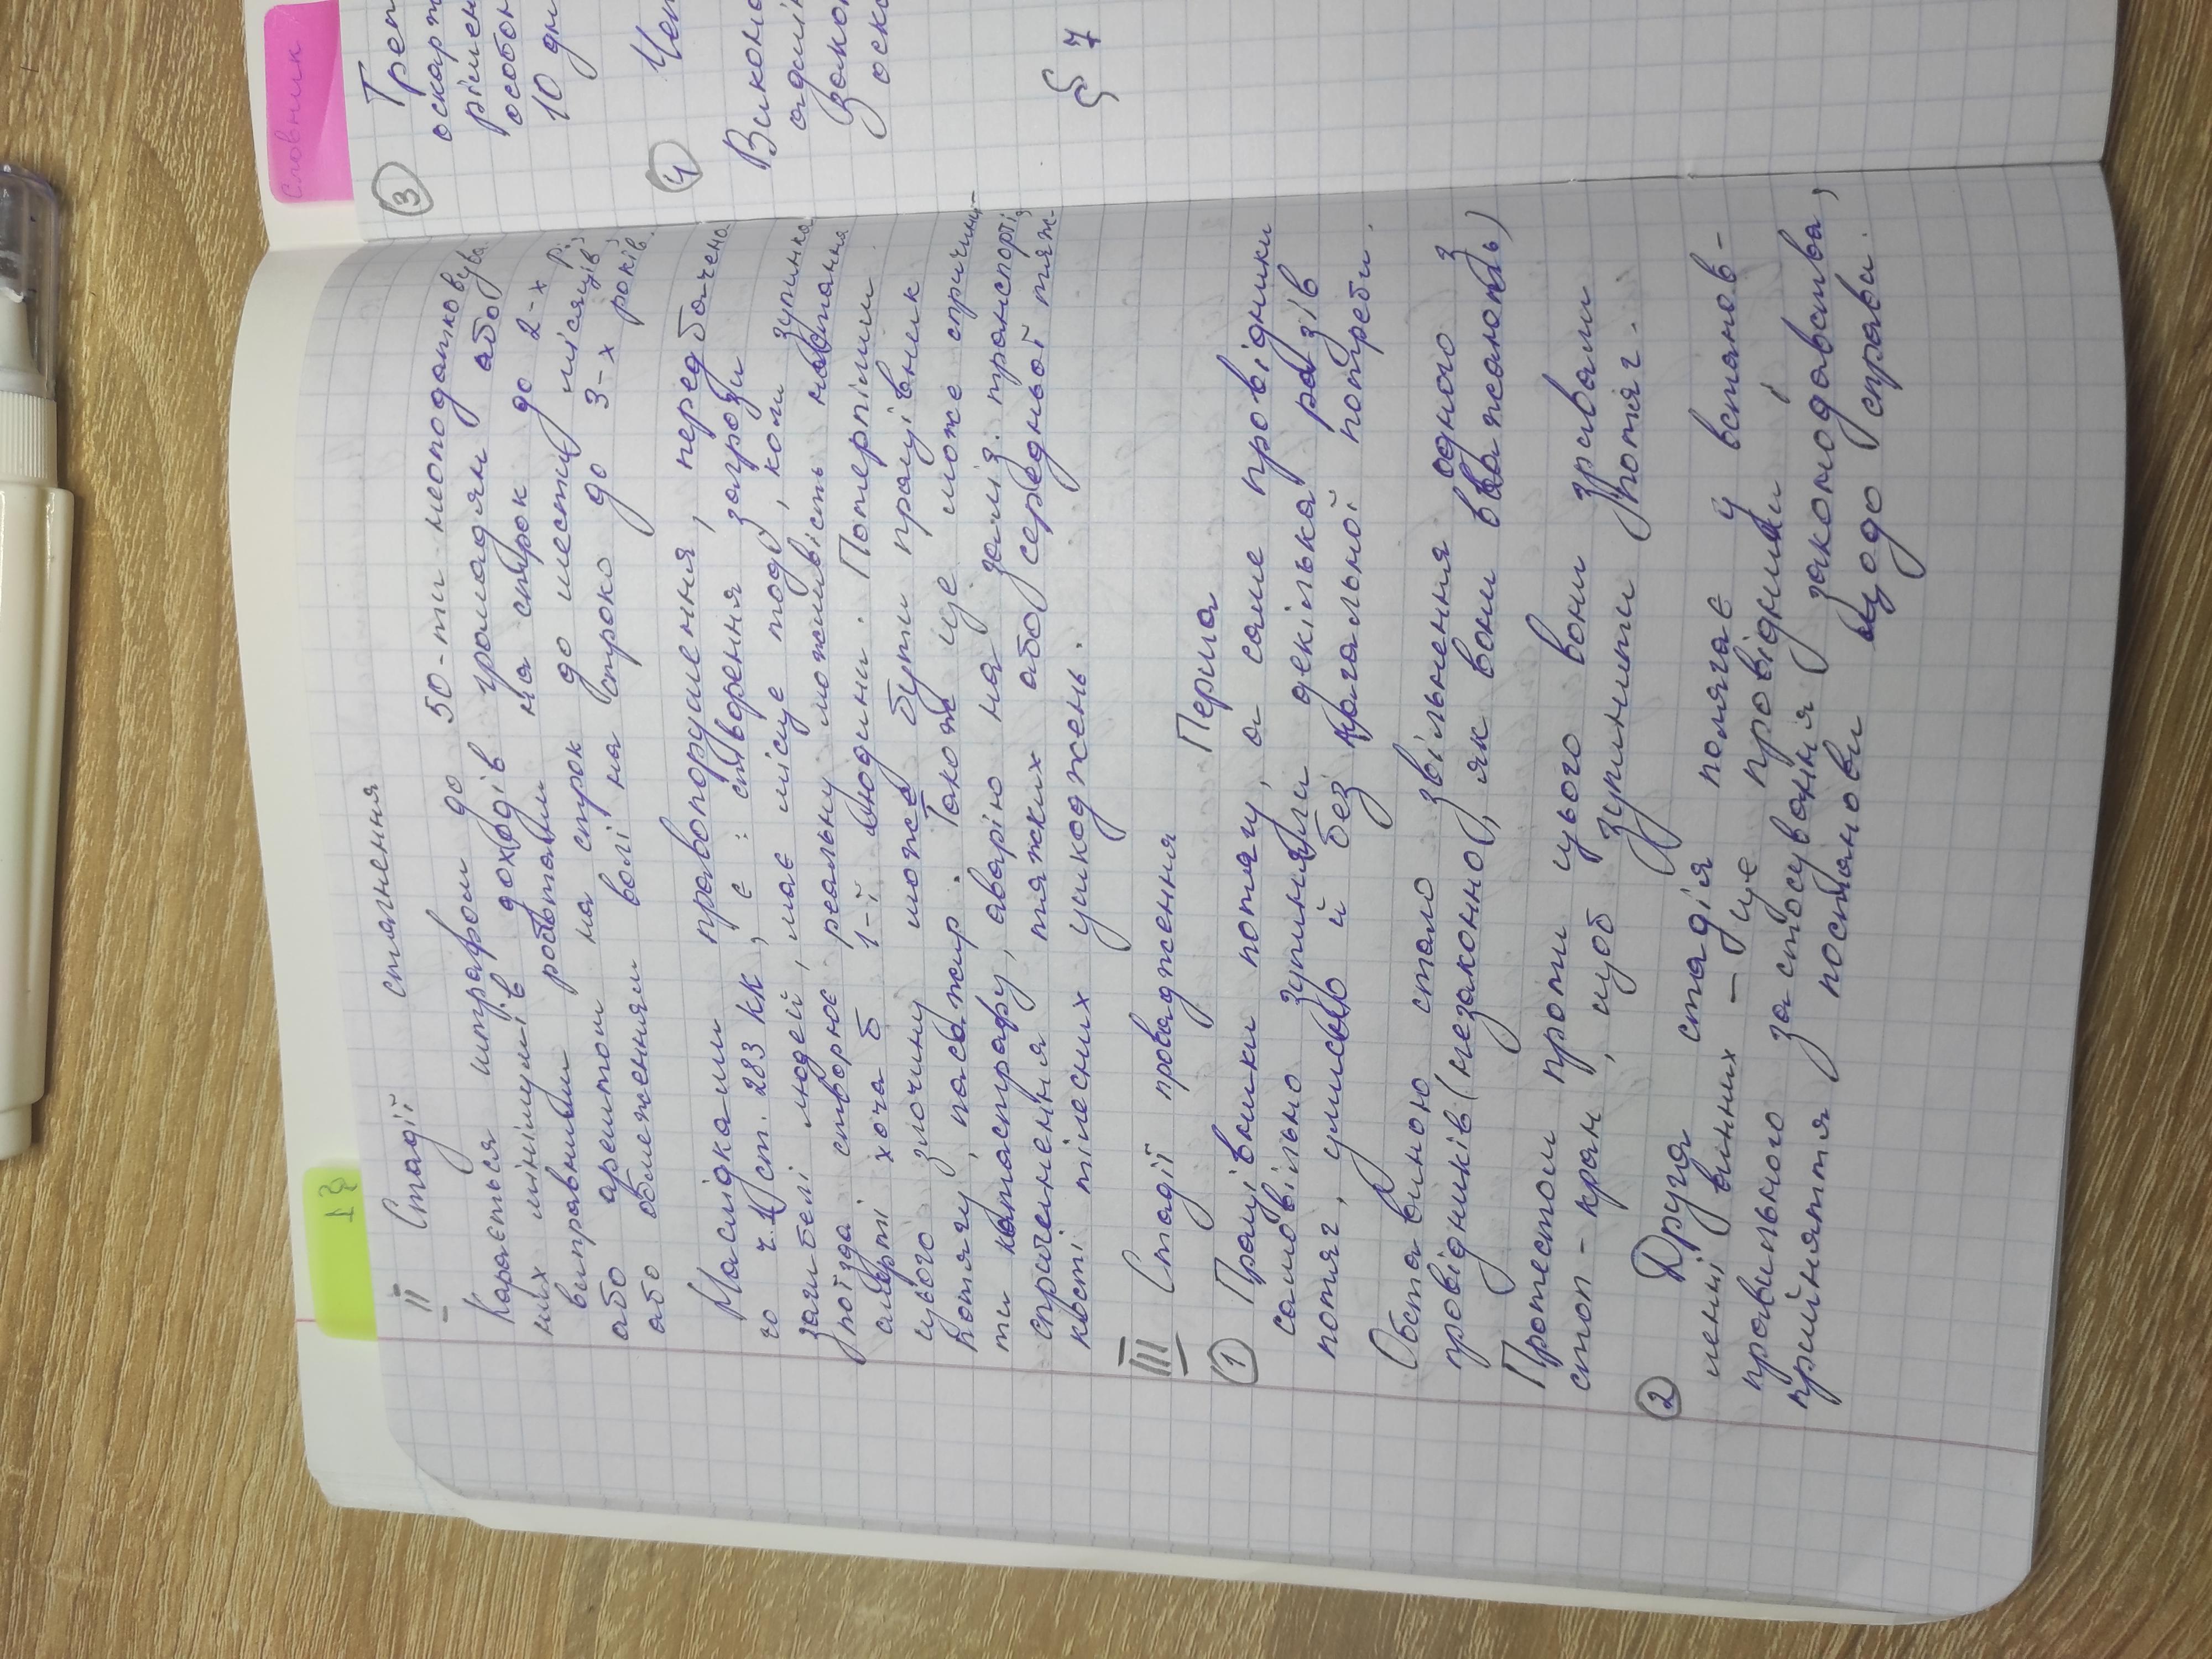 ІЗ
ІІ Стадії стягнення
Карається штрафом до 50-ти неоподатковува
них мінімумів доходів громадян або
виправними роботами на строк до 2-х р.,
або арештом на строк до шести місяців,
або обмеженням волі на строк до 3-х років.
Наслідками правопорушення, передбачено
го ч. 1 ст. 283 КК, є: створення загрози
загибелі людей, має місце тоді, коли зупинка
поїзда створює реальну можливість настання
смерті хоча б 1-ї людини. Потерпілим
цього злочину може бути працівник
потягу, пасажир. Також це може спричини-
ти катастрофу, аварію на заліз. транспорті,
спричинення тяжких або середньої тяж-
кості тілесних ушкоджень.
ІІІ Стадії провадження Перша
① Працівники потягу, а саме провідники
самовільно зупиняли декілька разів
потяг, умисно й без нагальної потреби.
Обставиною стало звільнення одного з
провідників (незаконно, як вони вважають)
Протестом проти цього вони зривали
стоп-кран, щоб зупинити потяг.
② Друга стадія полягає у встанов-
ленні винних – це провідники і
правильного застосування законодавства,
прийняття постанови щодо справи.
Словник
③ Трет
оскарж
рішен
особою
10 дн
④ Чет
Викона
адмін
Закон
оска
§ 7